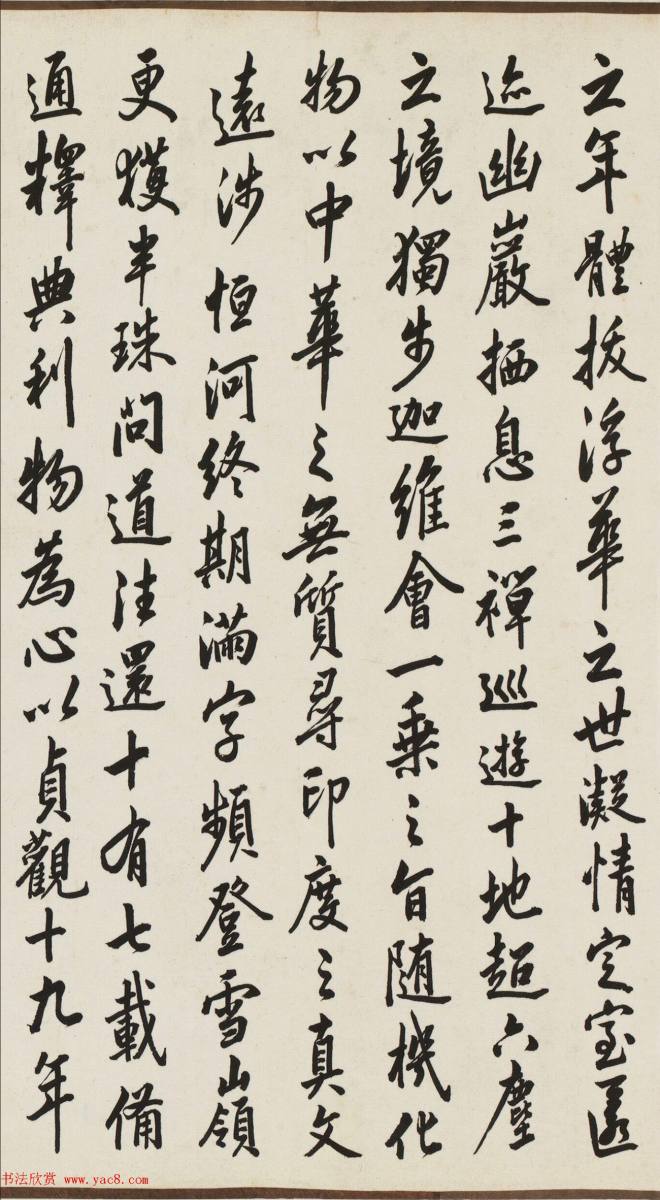 之年體拔浮華之世凝情定室匿
迹幽巖栖息三禪巡遊十地超六塵
之境獨步迦維會一乘之旨随機化
物以中華之無質尋印度之真文
遠涉恒河終期滿字頻登雪山嶺
更獲半珠問道法還十有七載備
通釋典利物為心以貞觀十九年
书法欣赏 www.yac8.com